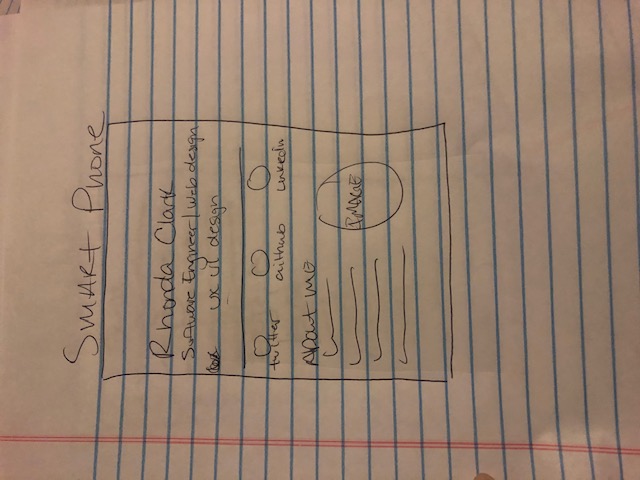 SMART Phone
Rhonda Clark
Software Engineer/web design
ux ui design
twitter github Linkedin
About ME
IMAGE